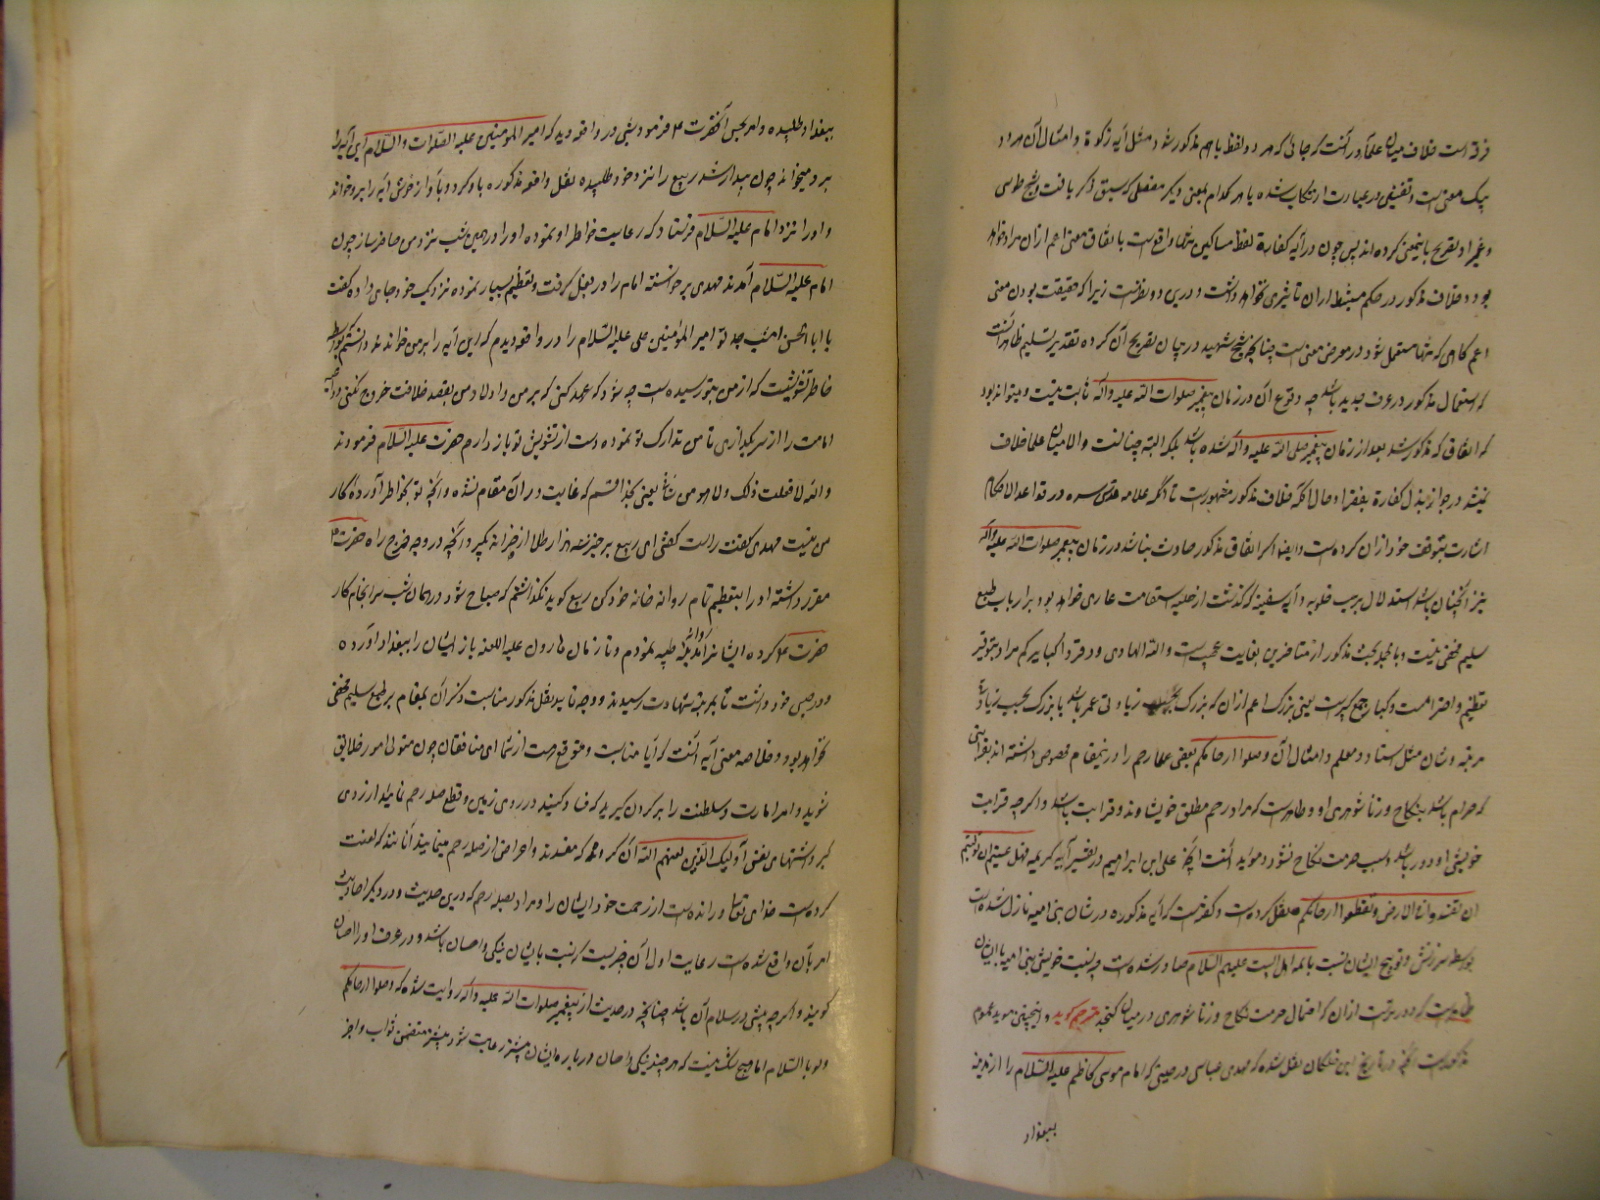 فرقه است خلاف میان علما در آنست که جائی که هر دو لفظ با هم مذکور شود مثل آیه زکوة و امثال آن مراد
بیک معنی است و تفننی در عبارت ارتکاب شده یا هر کدام بمعنی دیگر مفصلی که سبق ذکر یافت و شیخ طوسی
و غیر او تصریح باینمعنی کرده اند پس چون در آیه کفارة لفظ مساکین تنها واقع است باتفاق معنی اعم از آن مراد خواهد
بود و خلاف مذکور در حکم مستنبط از آن تاثیری نخواهد داشت و درین دو نظر است زیرا که حقیقت بودن معنی
اعم گاهی که تنها مستعمل شود در معرض منع است چنانچه شیخ شهید در بیان تصریح آن کرده و بتقدیر تسلیم ظاهر آنست
که استعمال مذکور در عرف جدید باشد چه وقوع آن در زمان پیغمبر صلوات الله علیه وآله ثابت نیست و میتواند بود
که اتفاق که مذکور شد بعد از زمان پیغمبر صلی الله علیه وآله شده باشد بلکه البته چنانست و الا میان علما خلاف
نمیشد در جواز بذل کفارة بفقرا و حال آنکه خلاف مذکور مشهور است تا آنکه علامه قدس سره در قواعد الاحکام
اشارت بتوقف خود از آن کرده است و ایضا اگر اتفاق مذکور صادق بناشد در زمان پیغمبر صلوات الله علیه وآله
نیز آنچنان باشد استدلال بریب قلوبه و آیه سفینه که گذشت از حلیه استقامت عاری خواهد بود بر ارباب طبع
سلیم مخفی نیست و بالجمله بحث مذکور از متاخرین بغایت عجیب است والله الهادی و وقروا کبایرکم مراد بتوقیر
تعظیم و احترامست و کبار جمع کبیر است یعنی بزرگ اعم از آن که بزرگ بحسب زیادتی عمر باشد یا بزرگ بحسب زیادتی
مرتبه و شان مثل استاد و معلم و امثال آن وصلوا ارحامکم بعضی علما رحم را در ینمقام مخصوص داشته اند بقرابتی
که حرام باشد بنکاح و زناشوهری او و ظاهر است که مراد رحم مطلق خویشاوند و قرابت باشد و اگرچه قرابت
خویشی او دور باشد و سبب حرمت نکاح نشود و مؤید آنست آنچه علی ابن ابراهیم در تفسیر آیه کریمه فهل عسیتم ان تولیتم
ان تفسدوا فی الارض و تقطعوا ارحامکم نقل کرده است و گفته است که آیه مذکوره در شان بنی امیه نازل شده است
بواسطه سرزنش و توبیخ ایشان نسبت بائمه اهل البیت علیهم السلام صادر شده است چه نسبت خویشی بنی امیه با ایشان
ظاهر است که دورترست از آن که احتمال حرمت نکاح و زناشوهری در میان گنجد مترجم گوید و همچنین مؤید عموم
مذکورست آنچه در تاریخ ابن خلکان نقل شده که مهدی عباسی در حینی که امام موسی کاظم علیه السلام را از مدینه
ببغداد
ببغداد طلبیده و امر بحبس آنحضرت ع فرمود شبی در واقعه دید که امیر المومنین علیه الصلوات والسلام این آیه را
بر و میخواند چون بیدار شد ربیع را نزد خود طلبیده نقل واقعه مذکوره باو کرد و بآواز خوش آیه را برو خواند
و او را نزد امام علیه السلام فرستاد که رعایت خاطر او نموده او را در همین شب نزد من حاضر ساز چون
امام علیه السلام آمدند مهدی برخواسته امام را در بغل گرفت و تعظیم بسیار نموده نزدیک خود جای داده گفت
یا ابا الحسن امشب جد تو امیر المؤمنین علی علیه السلام را در واقعه دیدم که این آیه را بر من خواندند دانستم که بواسطه
خاطر تشویشیست که از من بتو رسیده است چه شود که عهد کنی که بر من و اولاد من بقصد خلافت خروج نکنی و داعیه
امامت را از سر بگذاری تا من تدارک تو نموده دست از تشویش تو باز دارم حضرت علیه السلام فرمودند
والله لا فعلت ذلک و لا هو من شانی یعنی بخدا قسم که غایت در آن مقام نشده و آنچه تو بخاطر آورده کار
من نیست مهدی گفت راست گفتی ای ربیع برخیز سه هزار طلا از خزانه بگیر و آنچه در وجه خرج راه حضرت ع
مقرر داشته او را بتعظیم تمام روانه خانه خود کن ربیع گوید نگذاشتم که صباح شود در همان شب سرانجام کار
حضرت ع کرده ایشانرا روانه مدینه طیبه نمودم و تا زمان هارون علیه اللعنه باز ایشان را ببغداد آورده
و در حبس خود داشت تا بمرتبه شهادت رسیدند و وجه تایید نقل مذکور مناسبت ذکر آن بمقام بر طبع سلیم مخفی
نخواهد بود و خلاصه معنی آیه آنست که آیا مناسبت و متوقع هست از شما ای منافقان چون متولی امور خلایق
شوید و امر امارت و سلطنت را بر گردن گیرید که فساد کنید در روی زمین و قطع صله رحم نمایید از روی
کبر و اشتهای نفس اولیک الذین لعنهم الله آن گروهی که مفسدند و اعراض از صله رحم مینمایند آنانند که لعنت
کرده است خدای تعالی و رانده است از رحمت خود ایشان را و مراد بصله رحم که درین حدیث و در دیگر احادیث
امر بآن واقع شده است رعایت اول آن چیزیست که نسبت بایشان نیکی و احسان باشد و در عرف او را احسان
گویند و اگرچه پیشی در سلام آن باشد چنانچه در حدیث از پیغمبر صلوات الله علیه وآله روایت شده که وصلوا ارحامکم
ولو بالسلام اما هیچ شک نیست که هر چند نیکی و احسان درباره ایشان بیشتر رعایت شود بیشتر متضمن ثواب و اجر